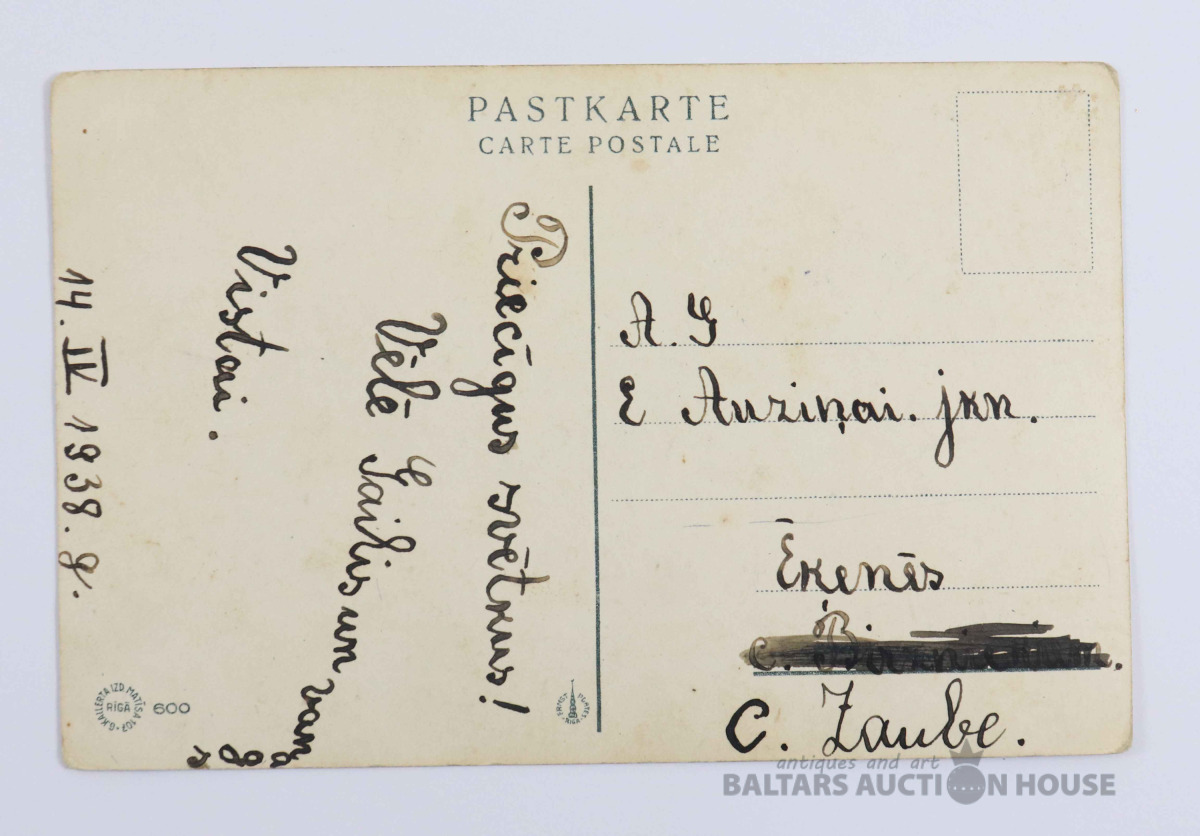 PASTKARTE
CARTE POSTALE
Priecīgus svētkus!
Vēlē Gailis un
Vistai.
14. IV 1938. g.
A. G
E Auziņai. jkn.
Ēķenēs
C. Zaube.
G. KALLERTA IZD. MATĪSA 107
RĪGĀ
600
antiques and art
BALTARS AUCTION HOUSE